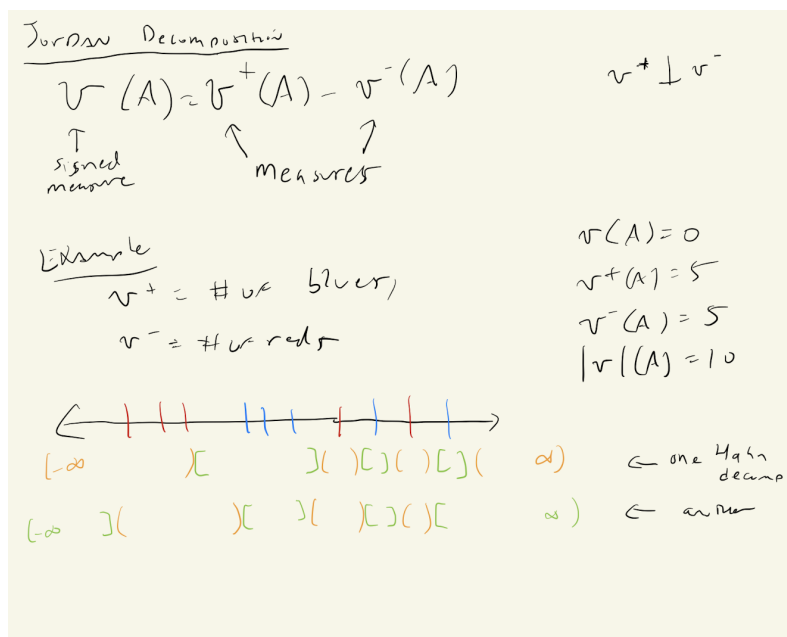 Jordan Decomposition
v(A) = v⁺(A) - v⁻(A)
v⁺ ⊥ v⁻
↑ ↑ ↗
signed measure
measures
Example
v⁺ = # of blues,
v⁻ = # of reds
v(A) = 0
v⁺(A) = 5
v⁻(A) = 5
|v|(A) = 10
(-∞ )[ ]( )[ ]( )[ ]( ∞) ← one Hahn decomp
(-∞ ]( )[ ]( )[ ]( )[ ∞) ← another